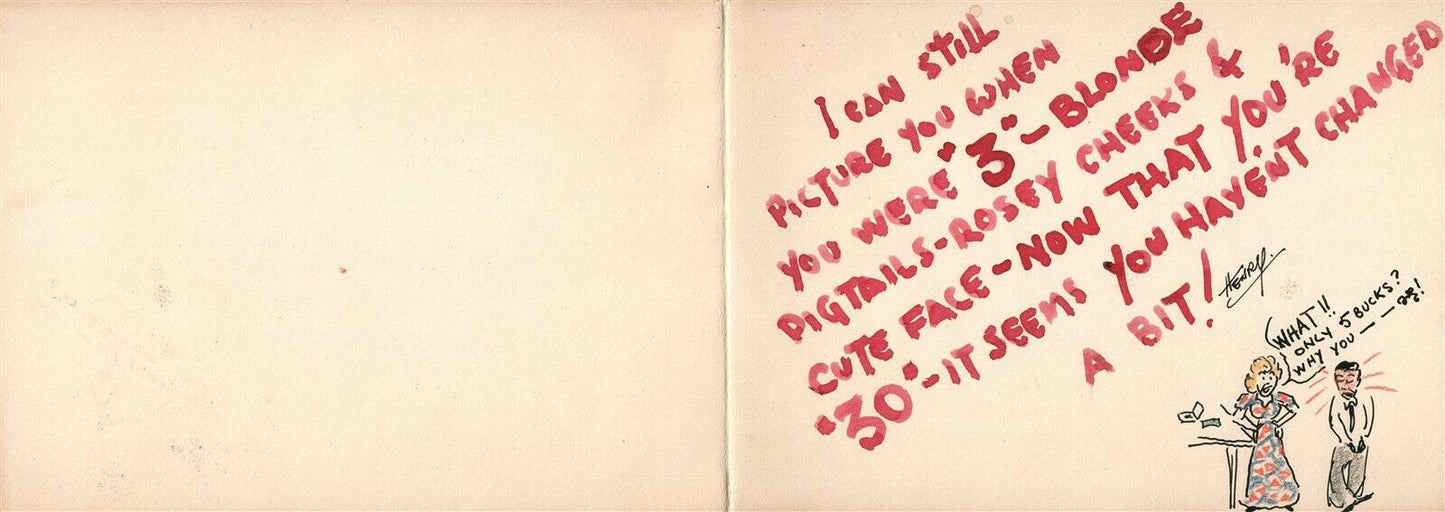 I CAN STILL
PICTURE YOU WHEN
YOU WERE "3"- BLONDE
PIGTAILS-ROSEY CHEEKS &
CUTE FACE-NOW THAT YOU'RE
"30"-IT SEEMS YOU HAVEN'T CHANGED
A BIT!
HENRY.
WHAT!!
ONLY 5 BUCKS?
WHY YOU — —!